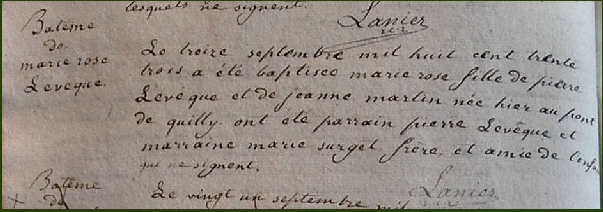 lesquels ne signent.
Lanier
rcr
Batême
de
marie rose
Levêque.
Le treize septembre mil huit cent trente
trois a été baptisée marie rose fille de pierre
Levêque et de jeanne martin née hier au pont
de quilly. ont été parrain pierre Levêque et
marraine marie surget frère, et amie de l'enfant
qui ne signent.
Lanier
rcr
Batême
de
Le vingt un septembre mil